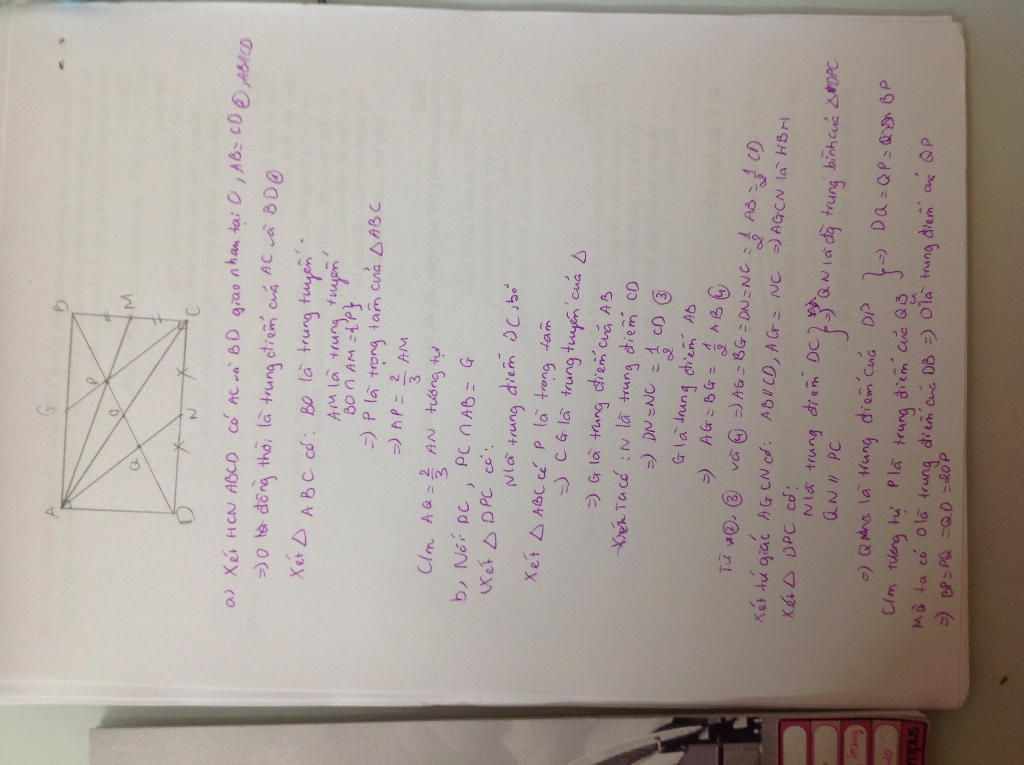 A
G
B
P
M
O
Q
D
N
C
a) Xét HCN ABCD có AC và BD giao nhau tại O, AB = CD ②, AB//CD
=) O là đồng thời là trung điểm của AC và BD ①
Xét △ ABC có: BO là trung tuyến.
AM là trung tuyến
BO ∩ AM = {P}
=) P là trọng tâm của △ ABC
=) AP = 2/3 AM
C/m AQ = 2/3 AN tương tự
b, Nối PC, PC ∩ AB = G
Xét △ DPC có:
N là trung điểm DC, bỏ
Xét △ ABC có P là trọng tâm
=) CG là trung tuyến của △
=) G là trung điểm của AB
Ta có: N là trung điểm CD
=) DN = NC = 1/2 CD ③
G là trung điểm AB
=) AG = BG = 1/2 AB ④
Từ ②, ③ và ④ =) AG = BG = DN = NC = 1/2 AB = 1/2 CD
Xét tứ giác AGCN có: AB//CD, AG = NC =) AGCN là HBH
Xét △ DPC có:
N là trung điểm DC } =) QN là đg trung bình của △ DPC
QN // PC
=) Q là trung điểm của DP
C/m tương tự P là trung điểm của QB } =) DQ = QP = BP
Mà ta có O là trung điểm của DB =) O là trung điểm của QP
=) BP = PQ = QD = 2OP
campus